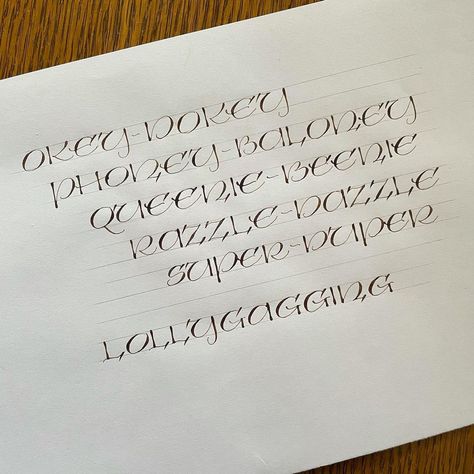 OKEY-DOKEY
PHONEY-BALONEY
QUEENIE-BEENIE
RAZZLE-DAZZLE
SUPER-DUPER
LOLLYGAGGING